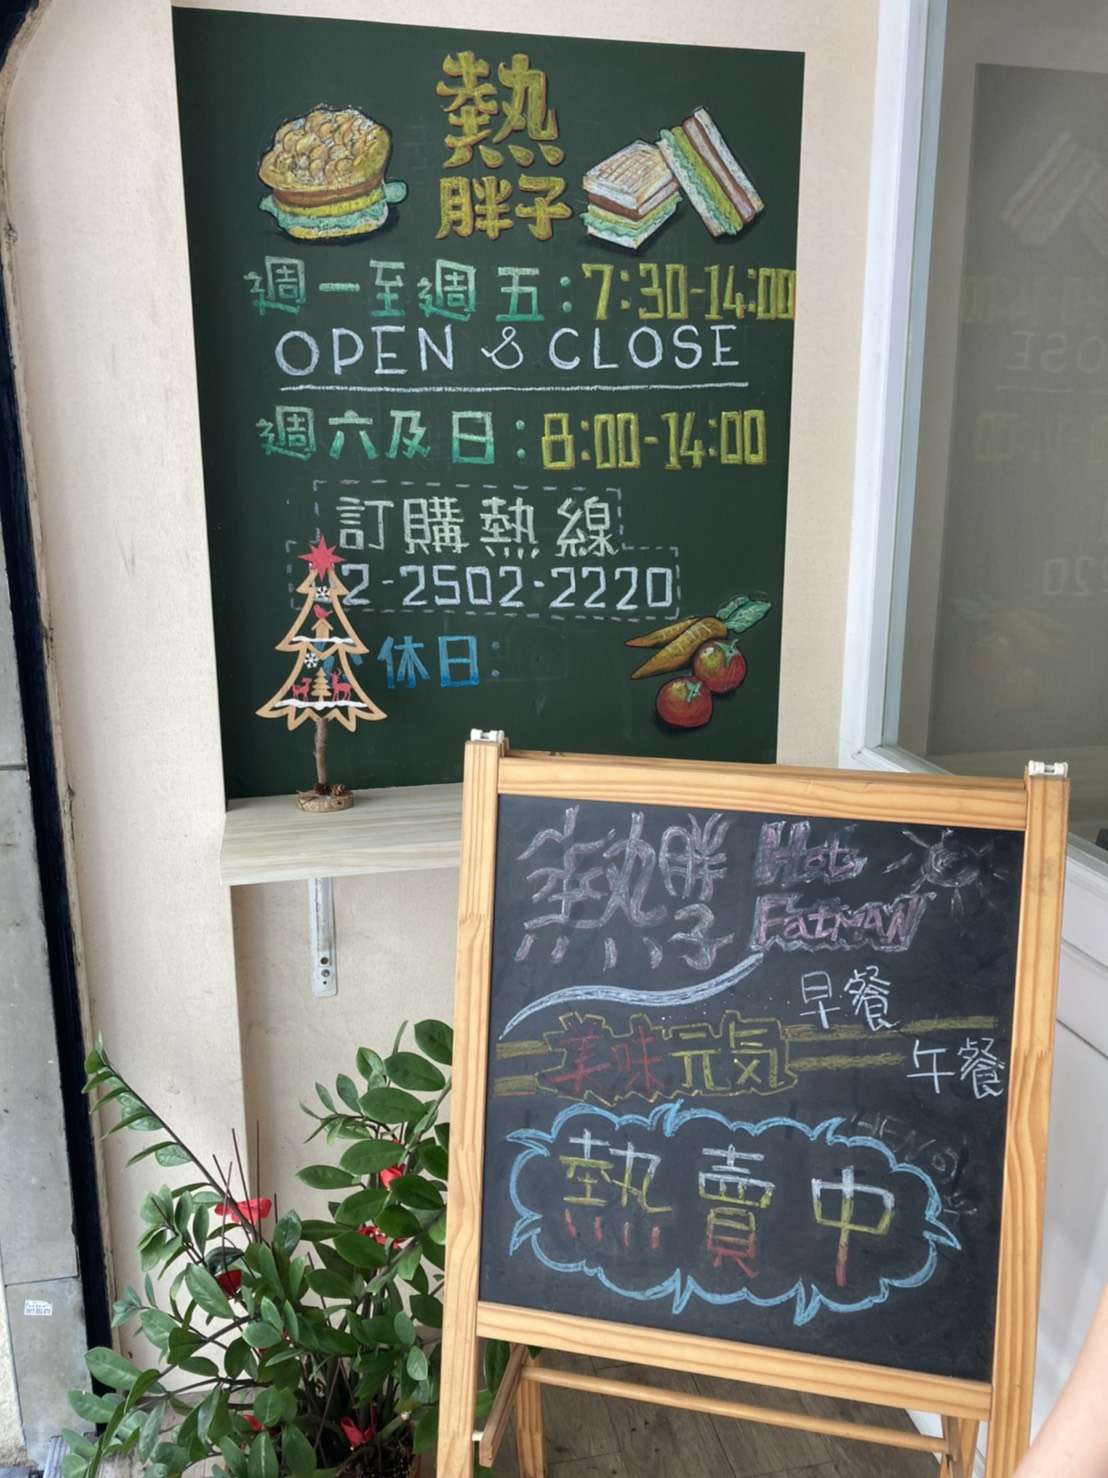 熱
胖子
週一至週五:7:30-14:00
OPEN & CLOSE
週六及日:8:00-14:00
訂購熱線
2-2502-2220
休日:
熱胖子
Hot
FatMAN
早餐
美味元気
午餐
熱賣中